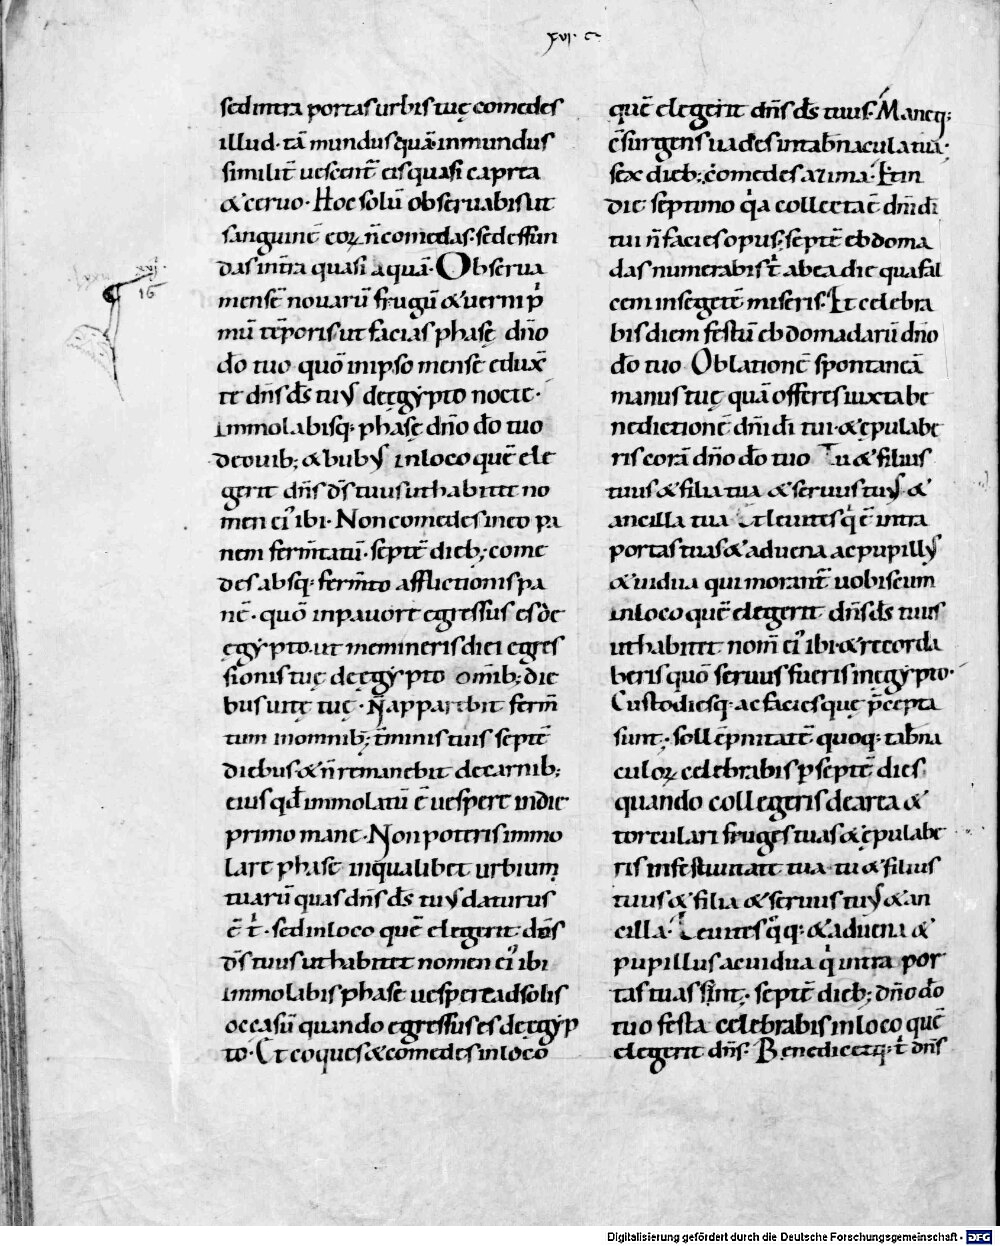 xvi · c
sed intra portas urbis tuę comedes
illud · tā mundus quā inmundus
similit̄ vescent̄ eis quasi caprea
& cervo · Hoc solū observabis ut
sanguinē eoꝝ n̄ comedas · sed effun
das intra quasi aquā · Observa
xvi
16
mensē novarū frugū & verni p̄
mū tēporis ut facias phase dn̄o
dō tuo quō in ipso mense eduxᷓ
te dn̄s ds̄ tuus de ęgẏpto nocte ·
immolabisq; phasę dn̄o dō tuo
de ovib; & bubus in loco quē ele
gerit dn̄s ds̄ tuus ut habitet no
men ei᾽ ibi · Non comedes in eo pa
nem ferm̄tatū · septē dieb; come
des absq; ferm̄to afflictionis pa
nē · quō in pavore egressus es de
ęgẏpto · ut memineris diei egres
sionis tuę de ęgẏpto omīb; die
bus vitę tuę · N̄ apparebit ferm̄
tum in omnib; t̄minis tuis septē
diebus & n̄ remanebit de carnib;
eius qd̄ immolatū ē vespere in die
primo mane · Non poteris immo
lare phase in qualibet urbium
tuarū quas dn̄s ds̄ tuus daturus
ē t̄ · sed in loco quē elegerit dn̄s
ds̄ tuus ut habitet nomen ei᾽ ibi
immolabis phase vespere ad solis
occasū quando egressus es de ęgẏp
to · Et coques & comedes in loco
quē elegerit dn̄s ds̄ tuus · Maneq;
c̄surgens vades in tab̄nacula tua ·
sex dieb; comedes azima · Et in
die septimo q̄a collecta ē dn̄i dī
tui n̄ facies opus; septē ebdoma
das numerabis t̄ ab ea die qua fal
cem in segetē miseris · Et celebra
bis diem festū ebdomadarū dn̄o
dō tuo Oblationē spontaneā
manus tuę quā offeres iuxta be
nedictionē dn̄i dī tui · & ępulabe
ris corā dn̄o dō tuo Tu & filius
tuus & filia tua & servus tuus &
ancilla tua Et levites q̄ ē intra
portas tuas & advena ac pupillus
& vidua qui morant̄ vobiscum
in loco quē elegerit dn̄s ds̄ tuus
ut habitet nom̄ ei᾽ ibi · & recorda
beris quō servus fueris in egẏpto ·
Custodiesq; ac facies que p̄cepta
sunt · sollēpnitatē quoq; tab̄na
culoꝝ celebrabis p septē dies
quando collegeris de area &
torculari fruges tuas & ępulabe
ris in festivitate tua · tu & filius
tuus & filia & servus tuus & an
cilla · Levites q̄q; & advena &
pupillus ac vidua q̄ intra por
tas tuas sunt · septē dieb; dn̄o dō
tuo festa celebrabis in loco quē
elegerit dn̄s · Benedicetq; t̄ dn̄s
Digitalisierung gefördert durch die Deutsche Forschungsgemeinschaft - DFG